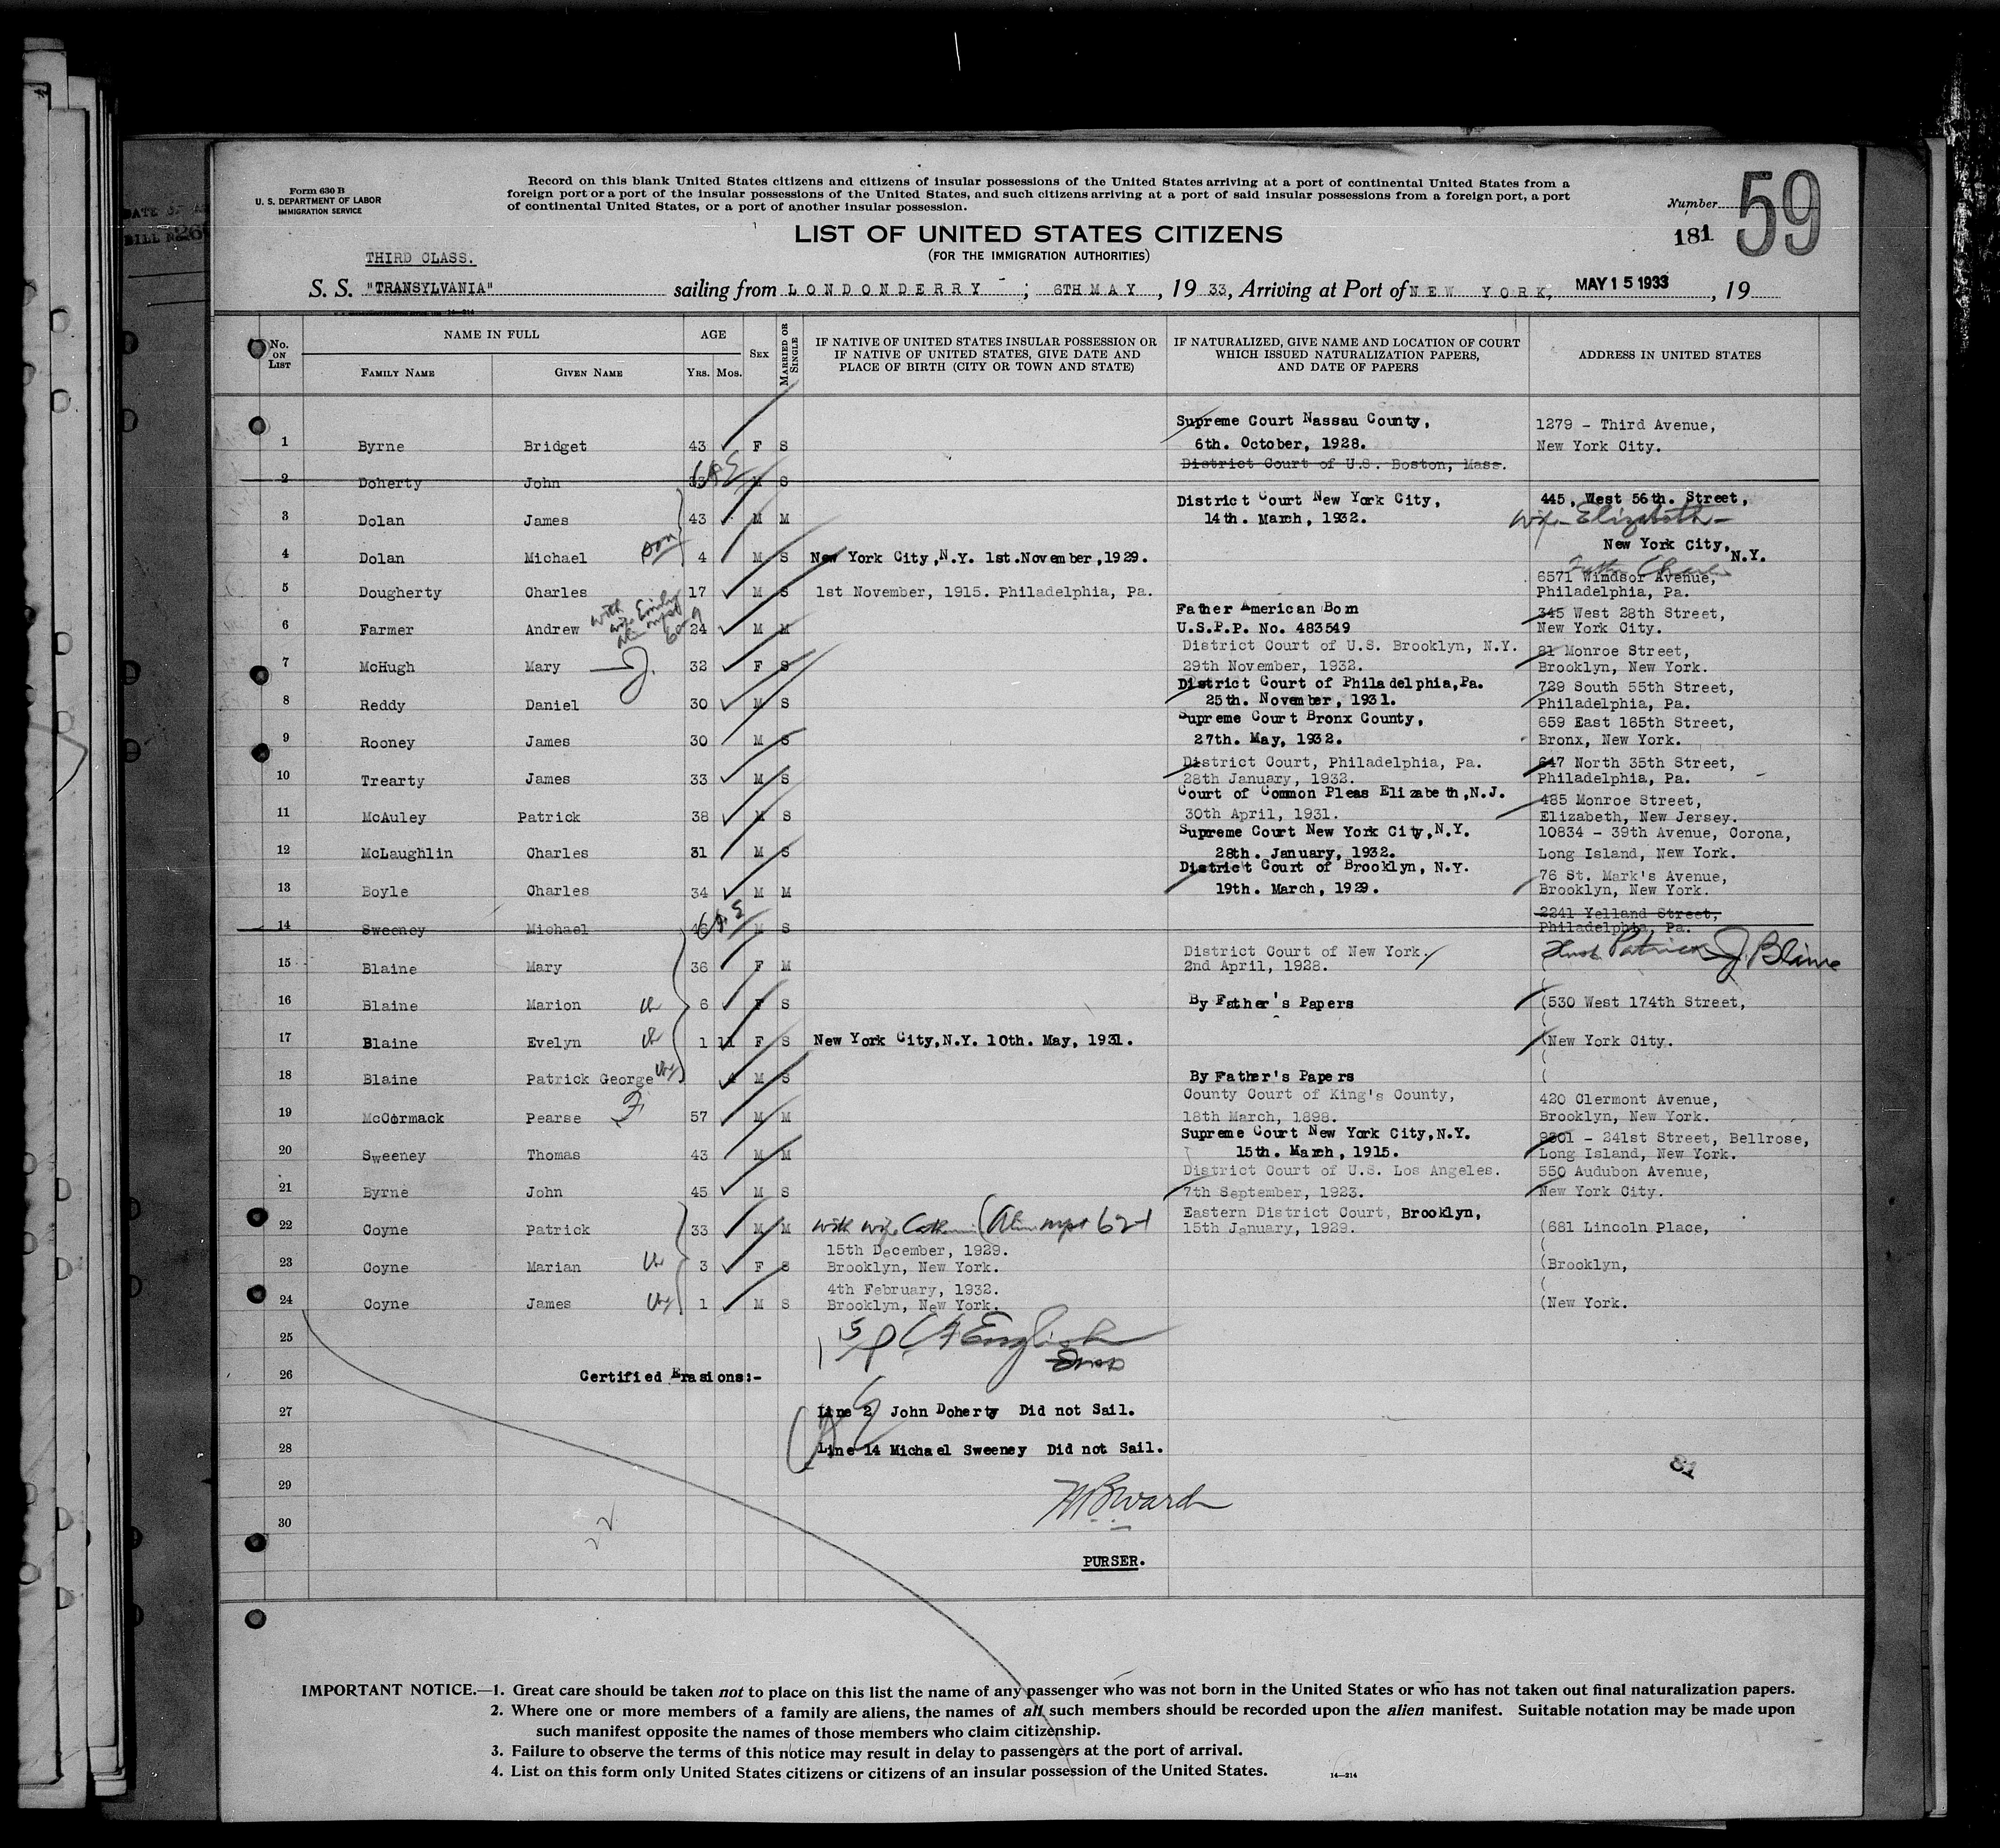 DATE
BILL No. 26
Form 630 B
U. S. DEPARTMENT OF LABOR
IMMIGRATION SERVICE
Record on this blank United States citizens and citizens of insular possessions of the United States arriving at a port of continental United States from a
foreign port or a port of the insular possessions of the United States, and such citizens arriving at a port of said insular possessions from a foreign port, a port
of continental United States, or a port of another insular possession.
Number 59
181
LIST OF UNITED STATES CITIZENS
(FOR THE IMMIGRATION AUTHORITIES)
THIRD CLASS.
S. S. "TRANSYLVANIA" sailing from LONDONDERRY ; 6TH MAY , 19 33, Arriving at Port of NEW YORK, MAY 15 1933 , 19
No. ON LIST
NAME IN FULL
FAMILY NAME GIVEN NAME
AGE
YRS. MOS.
SEX
MARRIED OR SINGLE
IF NATIVE OF UNITED STATES INSULAR POSSESSION OR
IF NATIVE OF UNITED STATES, GIVE DATE AND
PLACE OF BIRTH (CITY OR TOWN AND STATE)
IF NATURALIZED, GIVE NAME AND LOCATION OF COURT
WHICH ISSUED NATURALIZATION PAPERS,
AND DATE OF PAPERS
ADDRESS IN UNITED STATES
Supreme Court Nassau County, 1279 - Third Avenue,
1 Byrne Bridget 43 F S 6th. October, 1928. New York City.
District Court of U.S. Boston, Mass.
2 Doherty John S
District Court New York City, 445, West 56th. Street,
3 Dolan James 43 M M 14th. March, 1932. wife Elizabeth
New York City,
4 Dolan Michael son 4 M S New York City, N.Y. 1st. November, 1929. N.Y.
Father Charles
6571 Windsor Avenue,
5 Dougherty Charles 17 M S 1st November, 1915. Philadelphia, Pa. Philadelphia, Pa.
with wife Emily
Father American Born 345 West 28th Street,
6 Farmer Andrew 24 M M U.S.P.P. No. 483549 New York City.
District Court of U.S. Brooklyn, N.Y. 81 Monroe Street,
7 McHugh Mary J. 32 F S 29th November, 1932. Brooklyn, New York.
District Court of Philadelphia, Pa. 729 South 55th Street,
8 Reddy Daniel 30 M S 25th. November, 1931. Philadelphia, Pa.
Supreme Court Bronx County, 659 East 165th Street,
9 Rooney James 30 M S 27th. May, 1932. Bronx, New York.
District Court, Philadelphia, Pa. 647 North 35th Street,
10 Trearty James 33 M S 28th January, 1932. Philadelphia, Pa.
Court of Common Pleas Elizabeth, N.J. 485 Monroe Street,
11 McAuley Patrick 38 M S 30th April, 1931. Elizabeth, New Jersey.
Supreme Court New York City, N.Y. 10834 - 39th Avenue, Corona,
12 McLaughlin Charles 31 M S 28th. January, 1932. Long Island, New York.
District Court of Brooklyn, N.Y. 76 St. Mark's Avenue,
13 Boyle Charles 34 M M 19th. March, 1929. Brooklyn, New York.
2241 Yelland Street,
14 Sweeney Michael M S Philadelphia, Pa.
District Court of New York. Patrick J. Blaine
15 Blaine Mary 36 F M 2nd April, 1928.
16 Blaine Marion 6 F S By Father's Papers (530 West 174th Street,
17 Blaine Evelyn 1 11 F S New York City, N.Y. 10th. May, 1931. (New York City.
18 Blaine Patrick George 4 M S By Father's Papers
County Court of King's County, 420 Clermont Avenue,
19 McCormack Pearse F. 57 M M 18th March, 1898. Brooklyn, New York.
Supreme Court New York City, N.Y. 9301 - 241st Street, Bellrose,
20 Sweeney Thomas 43 M M 15th. March, 1915. Long Island, New York.
District Court of U.S. Los Angeles. 550 Audubon Avenue,
21 Byrne John 45 M S 7th September, 1923. New York City.
Eastern District Court, Brooklyn,
22 Coyne Patrick 33 M M with wife 15th January, 1929. (681 Lincoln Place,
15th December, 1929.
23 Coyne Marian 3 F S Brooklyn, New York. (Brooklyn,
4th February, 1932.
24 Coyne James 1 M S Brooklyn, New York. (New York.
25
26 Certified Erasions:-
27 Line 2 John Doherty Did not Sail.
28 Line 14 Michael Sweeney Did not Sail.
81
29
30
PURSER.
IMPORTANT NOTICE.—1. Great care should be taken not to place on this list the name of any passenger who was not born in the United States or who has not taken out final naturalization papers.
2. Where one or more members of a family are aliens, the names of all such members should be recorded upon the alien manifest. Suitable notation may be made upon
such manifest opposite the names of those members who claim citizenship.
3. Failure to observe the terms of this notice may result in delay to passengers at the port of arrival.
4. List on this form only United States citizens or citizens of an insular possession of the United States.
14—214